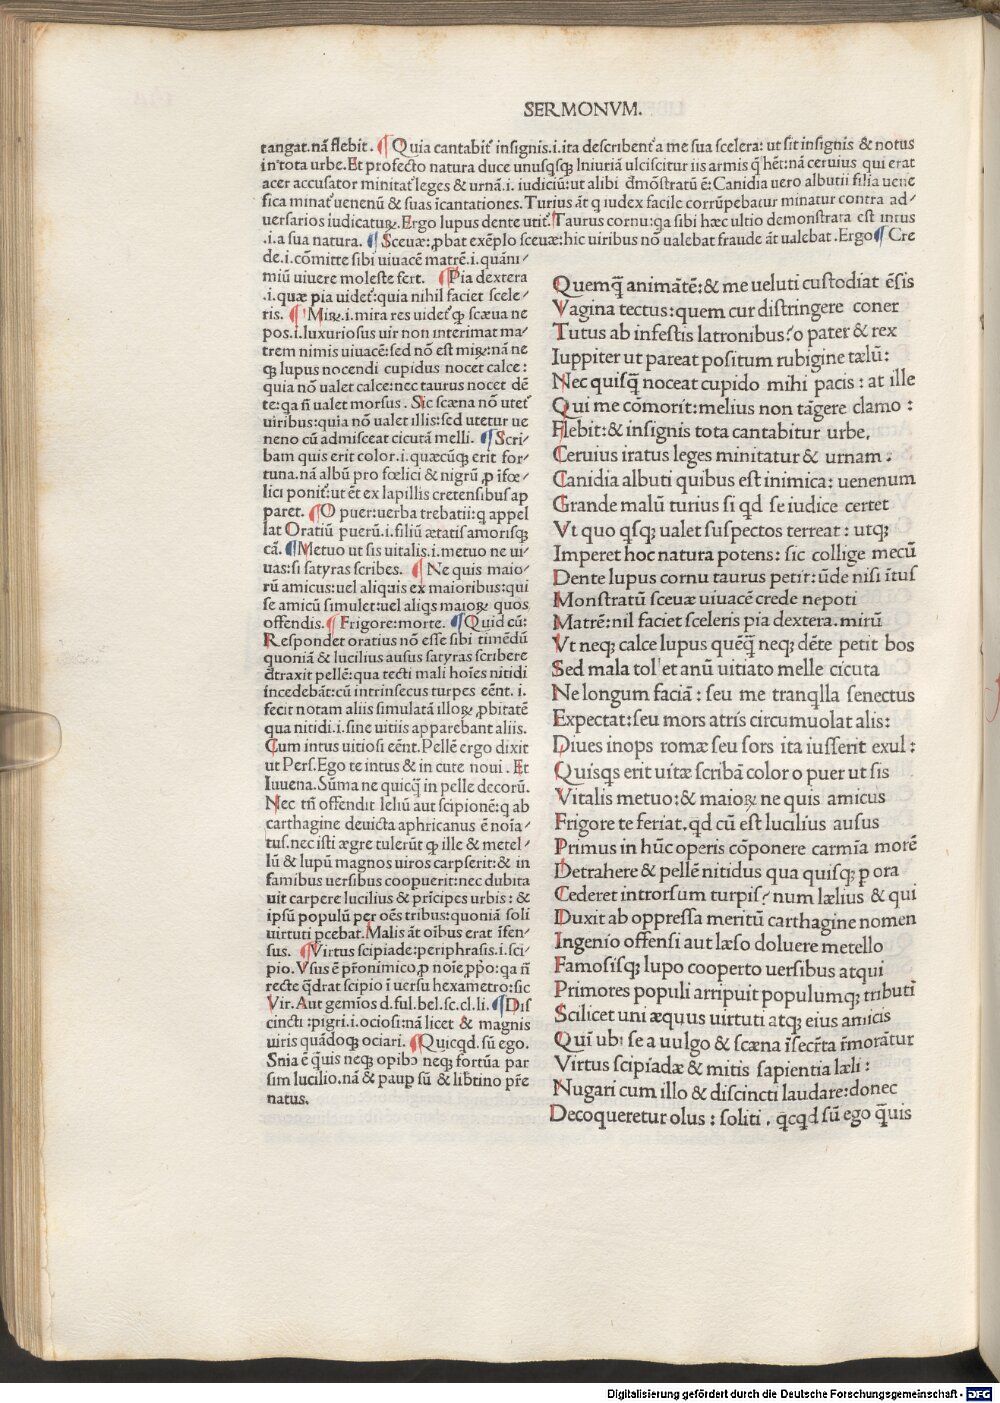 SERMONVM.
tangat. nã flebit. ¶ Quia cantabit᷑ insignis.i.ita describent᷑ a me sua scelera: ut sit insignis & notus
in tota urbe. Et profecto natura duce unusqsqꝫ Iniuriã ulciscitur iis armis q̃ hẽt: nã ceruius qui erat
acer accusator minitat᷑ leges & urnã.i. iudiciũ: ut alibi dẽmõstratũ ẽ: Canidia uero albutii filia uene
fica minat᷑ uenenũ & suas ĩcantationes. Turius ãt q iudex facile corrũpebatur minatur contra ad/
uersarios iudicaturꝝ. Ergo lupus dente utit᷑. Taurus cornu: qa sibi hæc ultio demonstrata est intus
.i. a sua natura. ¶ Sceuæ: ꝓbat exẽplo sceuæ: hic uiribus nõ ualebat fraude ãt ualebat. Ergo ¶ Cre
de.i. cõmitte sibi uiuacẽ matrẽ.i. quãni/
miũ uiuere moleste fert. ¶ Pia dextera
.i. quæ pia uidet᷑: quia nihil faciet scele/
ris. ¶ Miꝝ.i. mira res uidet᷑ qꝫ scæua ne
pos.i. luxuriosus uir non interimat ma/
trem nimis uiuacẽ: sed nõ est miꝝ: nã ne
qꝫ lupus nocendi cupidus nocet calce:
quia nõ ualet calce: nec taurus nocet dẽ
te: qa ñ ualet morsus. Sic scæna nõ utet᷑
uiribus: quia nõ ualet illis: sed utetur ue
neno cũ admisceat cicutã melli. ¶ Scri/
bam quis erit color.i. quæcũqꝫ erit for/
tuna. nã albũ pro fœlici & nigrũ ꝓ ĩfœ/
lici ponit᷑: ut ẽt ex lapillis cretensibus ap
paret. ¶ O puer: uerba trebatii: q appel
lat Oratiũ puerũ.i. filiũ ætatis amorisqꝫ
cã. ¶ Metuo ut sis uitalis.i. metuo ne ui/
uas: si satyras scribes. ¶ Ne quis maio/
rũ amicus: uel aliquis ex maioribus: qui
se amicũ simulet: uel aliqs maioꝝ quos
offendis. ¶ Frigore: morte. ¶ Quid cũ:
Respondet oratius nõ esse sibi timẽdũ
quoniã & lucilius ausus satyras scribere
dtraxit pellẽ: qua tecti mali hoĩes nitidi
ĩncedebãt: cũ intrinsecus turpes eẽnt. i.
fecit notam aliis simulatã illoꝝ ꝓbitatẽ
qua nitidi.i. sine uitiis apparebant aliis.
Cum intus uitiosi eẽnt. Pellẽ ergo dixit
ut Pers. Ego te intus & in cute noui. Et
Iuuena. Sũma ne quicq̃ in pelle decorũ.
Nec tñ offendit leliũ aut scipionẽ: q ab
carthagine deuicta aphricanus ẽ noĩa/
tus. nec isti ægre tulerũt qꝫ ille & metel/
lũ & lupũ magnos uiros carpserit: & in
famibus uersibus coopuerit: nec dubita
uit carpere lucilius & prĩcipes urbis: &
ipsũ populũ per oẽs tribus: quoniã soli
uirtuti pcebat. Malis ãt oĩbus erat ĩfen/
sus. ¶ Virtus scipiade: periphrasis.i. sci/
pio. Vsus ẽ pr̃onimico ꝓ noĩe ꝓp̃o: qa ñ
recte q̃drat scipio ĩ uersu hexametro: sic
Vir. Aut gemĩos d. ful. bel. sc. cl. li. ¶ Dis
cincti: pigri.i. ociosi: nã licet & magnis
uiris quãdoqꝫ ociari. ¶ Quicqd. sũ ego.
Snia ẽ q̃uis neqꝫ opibꝰ neqꝫ fortũa par
sim lucilio. nã & paup sũ & lib̃tino pr̃e
natus.
Quemq̃ animãtẽ: & me ueluti custodiat ẽsis
Vagina tectus: quem cur distringere coner
Tutus ab infestis latronibus? o pater & rex
Iuppiter ut pareat positum rubigine tælũ:
Nec quisq̃ noceat cupido mihi pacis: at ille
Qui me cõmorit: melius non tãgere clamo:
Flebit: & insignis tota cantabitur urbe.
Ceruius iratus leges minitatur & urnam:
Canidia albuti quibus est inimica: uenenum
Grande malũ turius si qd se iudice certet
Vt quo qsqꝫ ualet suspectos terreat: utqꝫ
Imperet hoc natura potens: sic collige mecũ
Dente lupus cornu taurus petit: ũde nisi ĩtus
Monstratũ sceuæ uiuacẽ crede nepoti
Matrẽ: nil faciet sceleris pia dextera. mirũ
Vt neqꝫ calce lupus quẽq̃ neqꝫ dẽte petit bos
Sed mala tol'et anũ uitiato melle cicuta
Ne longum faciã: seu me tranqlla senectus
Expectat: seu mors atris circumuolat alis:
Diues inops romæ seu sors ita iusserit exul:
Quisqs erit uitæ scribã color o puer ut sis
Vitalis metuo: & maioꝝ ne quis amicus
Frigore te feriat. qd cũ est lucilius ausus
Primus in hũc operis cõponere carmĩa morẽ
Detrahere & pellẽ nitidus qua quisqꝫ ꝑ ora
Cederet introrsum turpis? num lælius & qui
Duxit ab oppressa meritũ carthagine nomen
Ingenio offensi aut læso doluere metello
Famosisqꝫ lupo cooperto uersibus atqui
Primores populi arripuit populumqꝫ tributĩ
Scilicet uni æquus uirtuti atqꝫ eius amicis
Quĩ ubi se a uulgo & scæna ĩ secr̃ta r̃morãtur
Virtus scipiadæ & mitis sapientia læli:
Nugari cum illo & discincti laudare: donec
Decoqueretur olus: soliti. q̃cqd sũ ego q̃uis
Digitalisierung gefördert durch die Deutsche Forschungsgemeinschaft - DFG